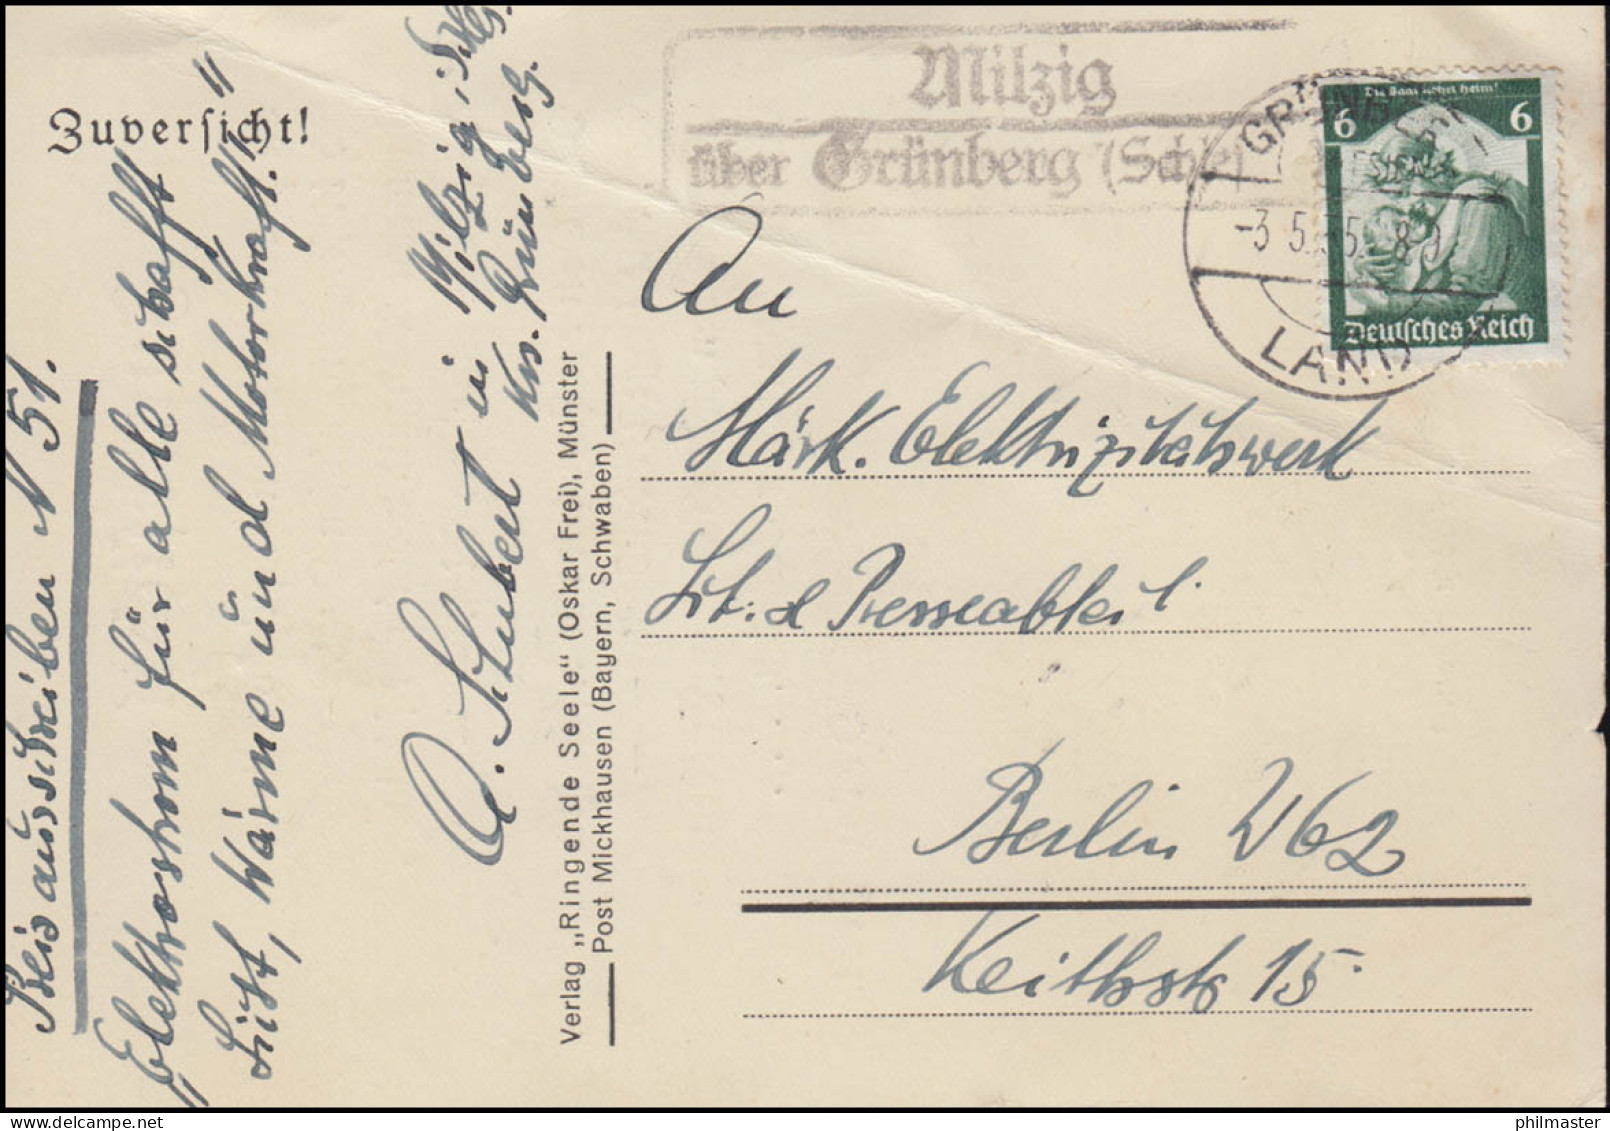 Zuversicht!
Preisausschreiben N 51.
"Elektrostrom für alle schafft
Licht, Wärme und Motorkraft."
A. Schubert in Milzig i. Schles.
Krs. Grünberg.
Verlag „Ringende Seele“ (Oskar Frei), Münster
Post Mickhausen (Bayern, Schwaben)
Milzig
über Grünberg (Schles
GRÜNBERG
-3.5.35. 8-9
LAND
Die Saar kehrt heim!
6 6
Deutsches Reich
An
Märk. Elektrizitätswerk
Lit. d Presseabtei l.
Berlin W 62
Keithstr 15
philmaster